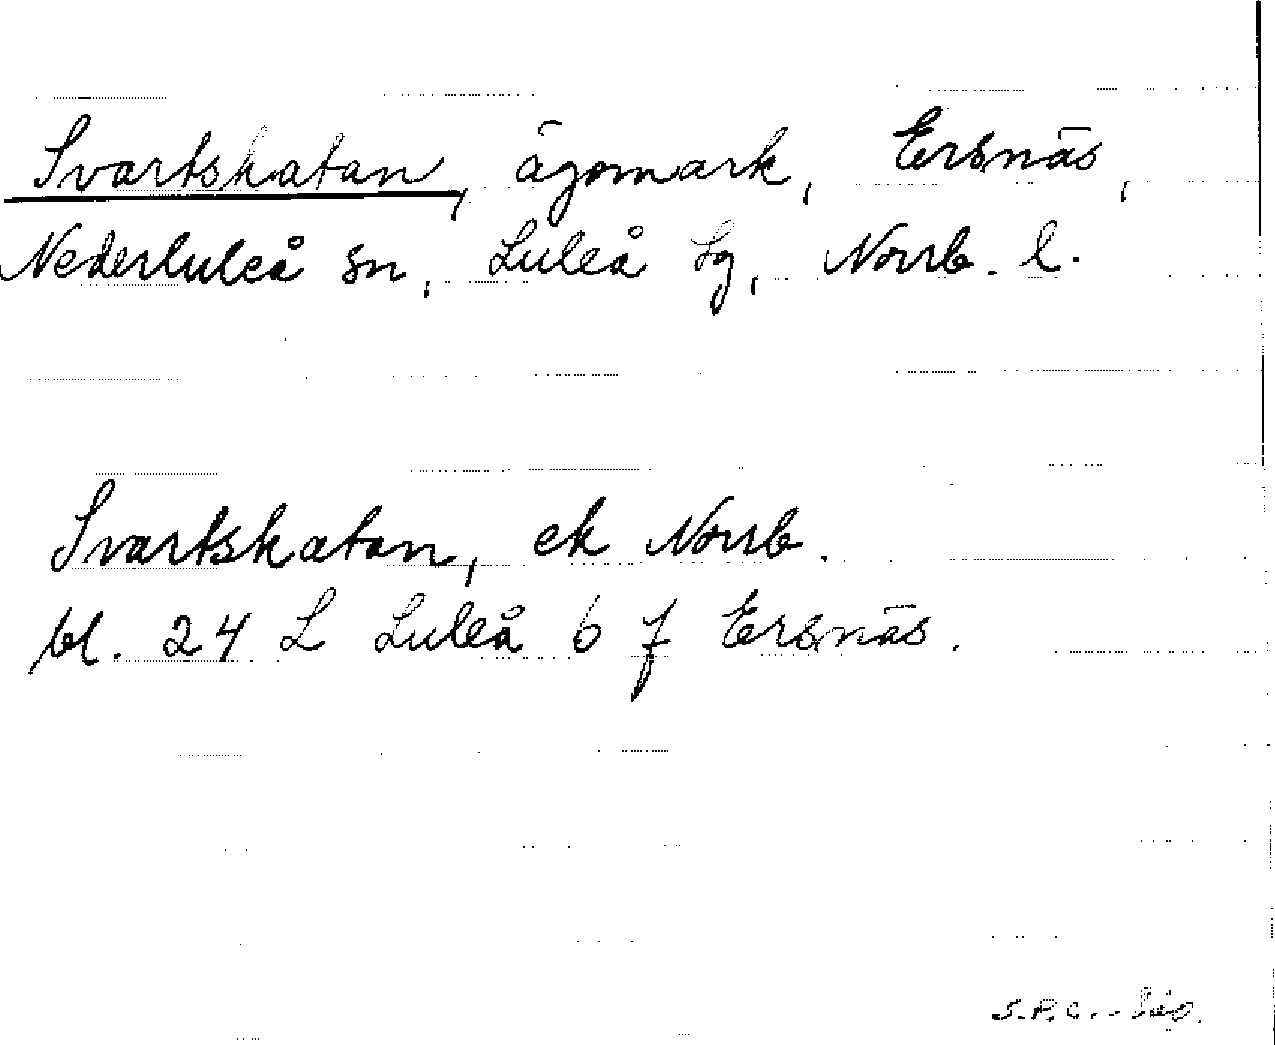 Svartskatan, ägomark, Ersnäs,
Nederluleå sn, Luleå lg, Norrb. l.
Svartskatan, ek Norrb.
bl. 24 L Luleå 6 f Ersnäs.
S.P.C.